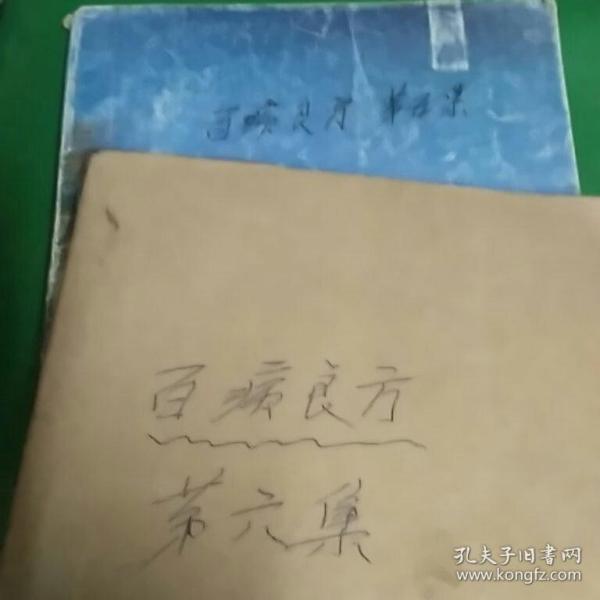 百病良方 第五集
百病良方
第六集
孔夫子旧书网
www.kongfz.com